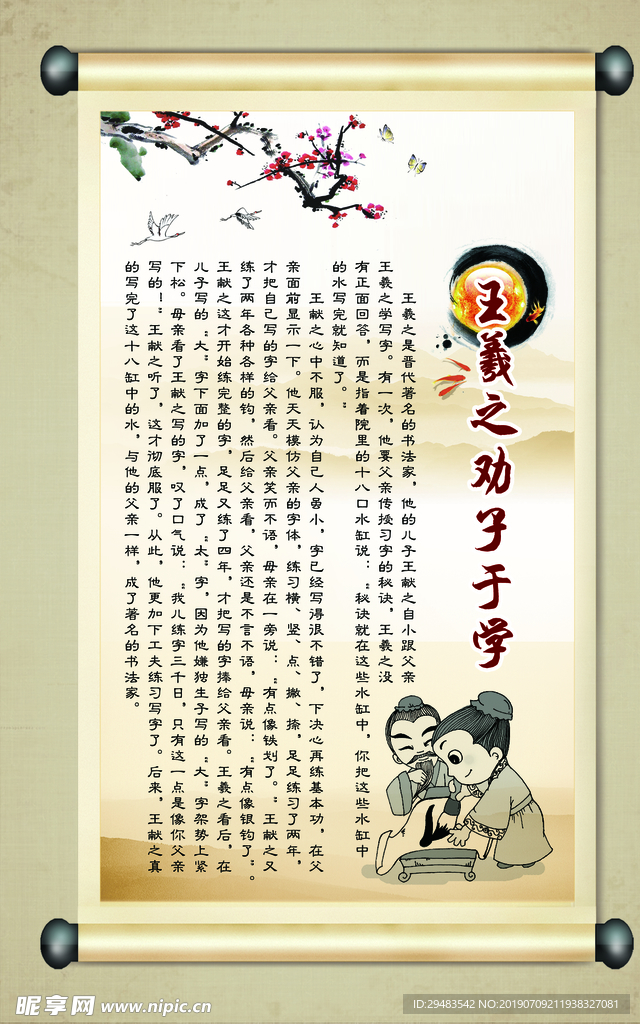 王羲之劝子于学
王羲之是晋代著名的书法家，他的儿子王献之自小跟父亲
王羲之学写字。有一次，他要父亲传授习字的秘诀，王羲之没
有正面回答，而是指着院里的十八口水缸说：“秘诀就在这些水缸中，你把这些水缸中
的水写完就知道了。”
王献之心中不服，认为自己人虽小，字已经写得很不错了，下决心再练基本功，在父
亲面前显示一下。他天天模仿父亲的字体，练习横、竖、点、撇、捺，足足练习了两年，
才把自己写的字给父亲看。父亲笑而不语，母亲在一旁说：“有点像铁划了。”王献之又
练了两年各种各样的钩，然后给父亲看，父亲还是不言不语，母亲说：“有点像银钩了”。
王献之这才开始练完整的字，足足又练了四年，才把写的字捧给父亲看。王羲之看后，在
儿子写的“大”字下面加了一点，成了“太”字，因为他嫌独生子写的“大”字架势上紧
下松。母亲看了王献之写的字，叹了口气说：“我儿练字三千日，只有这一点是像你父亲
写的！”王献之听了，这才彻底服了。从此，他更加下工夫练习写字了。后来，王献之真
的写完了这十八缸中的水，与他的父亲一样，成了著名的书法家。
昵享网 www.nipic.cn
ID:29483542 NO:20190709211938327081